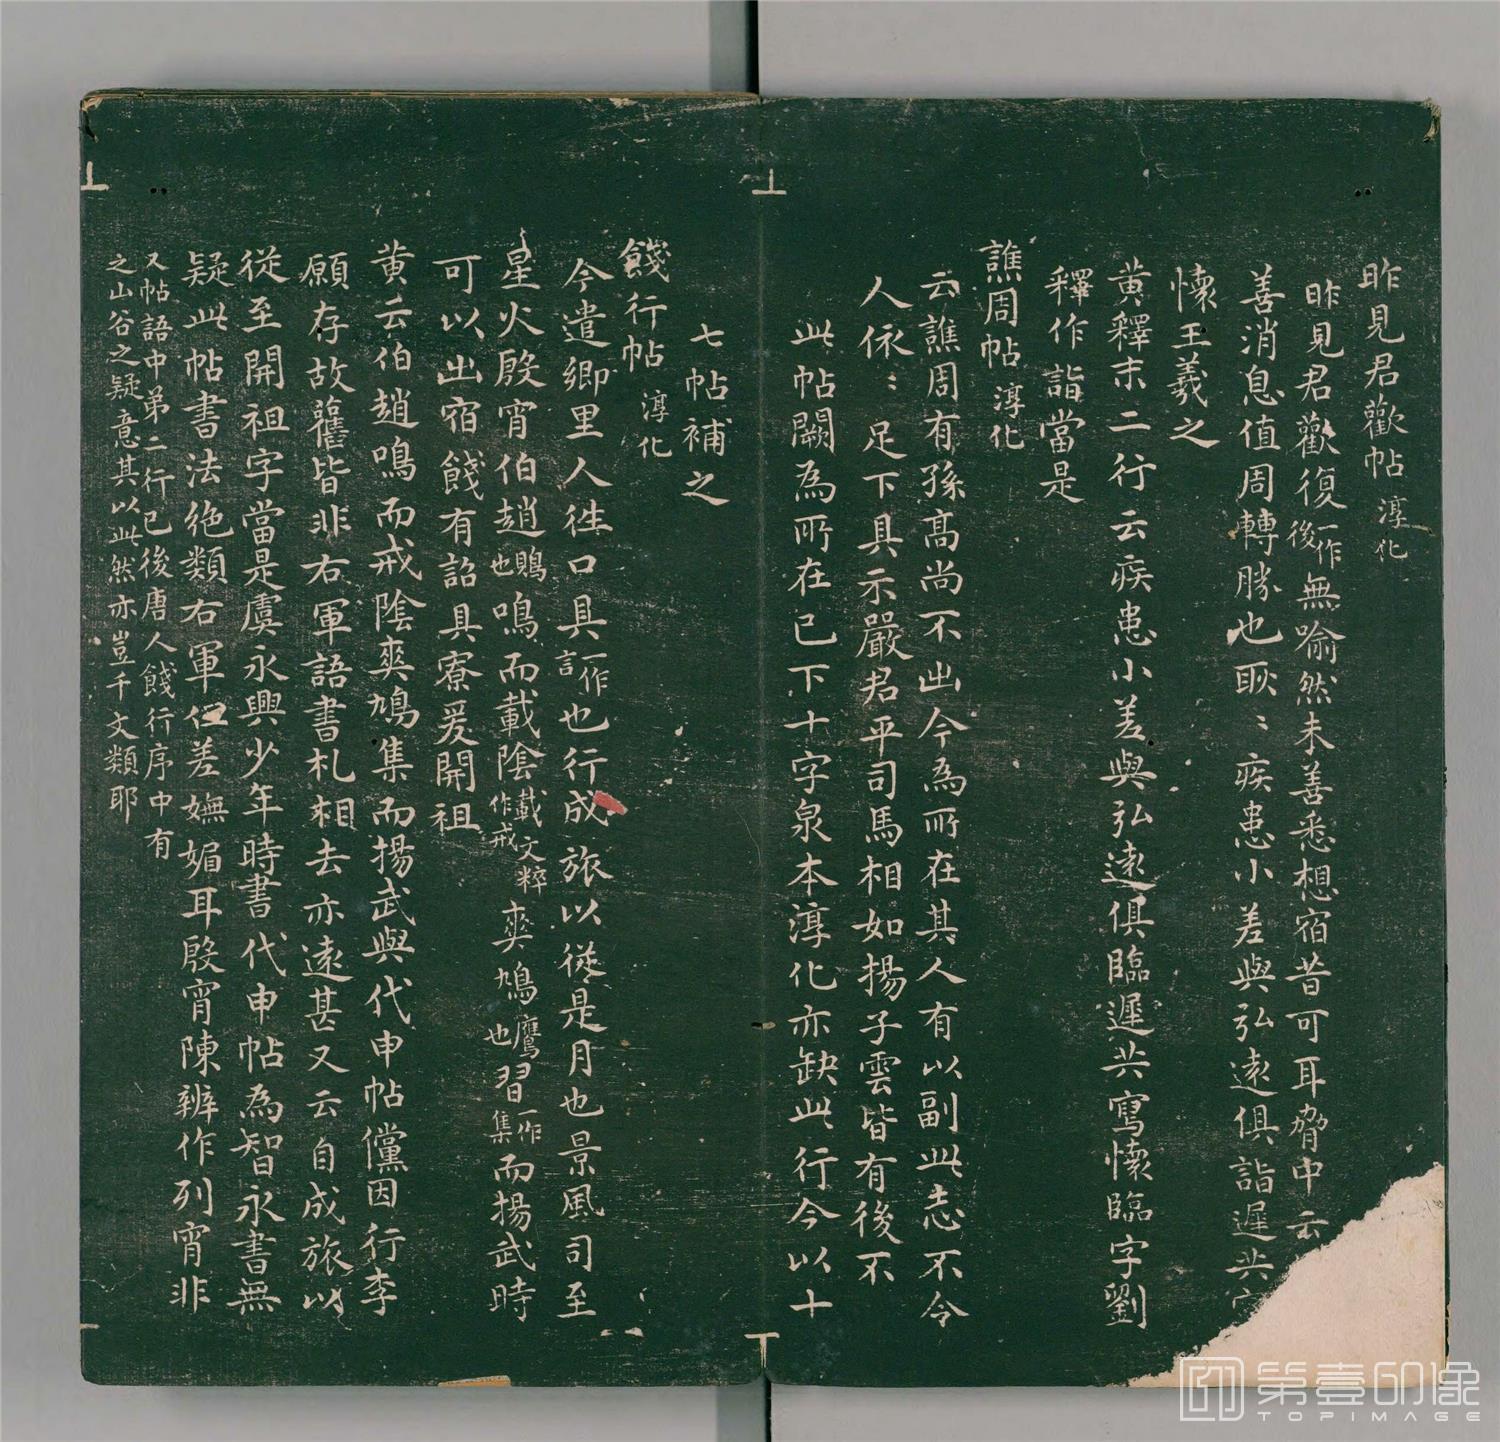 昨見君歡帖淳化
昨見君歡復一作後無喻然未善悉想宿昔可耳脅中云
善消息值周轉勝也耿〻疾患小差與弘遠俱詣遲共
懷王羲之
黄釋末二行云疾患小差與弘遠俱臨遲共寫懷臨字劉
釋作詣當是
譙周帖淳化
云譙周有孫高尚不出今為所在其人有以副此志不令
人依〻足下具示嚴君平司馬相如揚子雲皆有後不
此帖闕為所在已下十字泉本淳化亦缺此行今以十
七帖補之
餞行帖淳化
今遣鄉里人往口具一作言也行成旅以從是月也景風司至
星火殷宵伯趙鵙也鳴而載陰載文粹作戒爽鳩鷹也習一作集而揚武時
可以出宿餞有詔具寮爰開祖
黄云伯趙鳴而戒陰爽鳩集而揚武與代申帖儻因行李
願存故舊皆非右軍語書札相去亦遠甚又云自成旅以
從至開祖字當是虞永興少年時書代申帖為智永書無
疑此帖書法絶類右軍但差嫵媚耳殷宵陳辨作列宵非
又帖語中弟二行已後唐人餞行序中有
之山谷之疑意其以此然亦豈千文類耶
第壹印像
TOPIMAGE